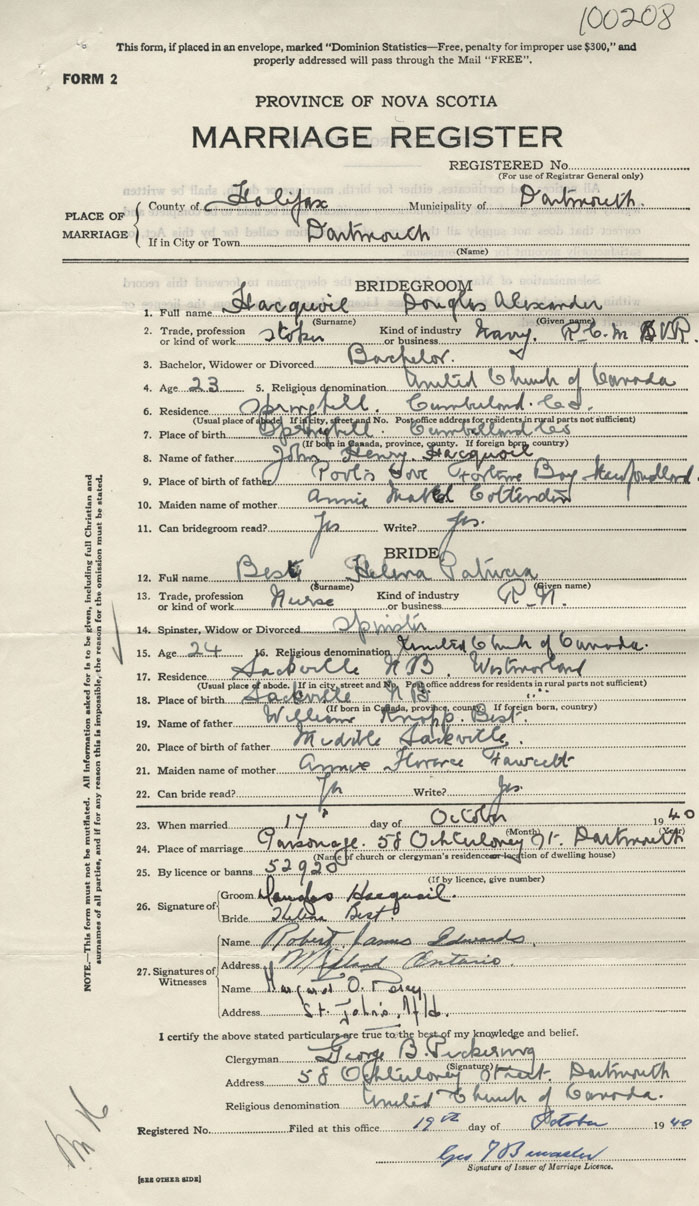 100208
This form, if placed in an envelope, marked "Dominion Statistics—Free, penalty for improper use $300," and
properly addressed will pass through the Mail "FREE".
FORM 2
PROVINCE OF NOVA SCOTIA
MARRIAGE REGISTER
REGISTERED No.
(For use of Registrar General only)
PLACE OF MARRIAGE
County of Halifax Municipality of Dartmouth.
If in City or Town Dartmouth
(Name)
BRIDEGROOM
1. Full name Hacquoil Douglas Alexander
(Surname) (Given name)
2. Trade, profession or kind of work Stoker Kind of industry or business Navy. R.C.N.V.R.
3. Bachelor, Widower or Divorced Bachelor.
4. Age 23 5. Religious denomination United Church of Canada
6. Residence Springhill. Cumberland Co.
(Usual place of abode. If in city, street and No. Post office address for residents in rural parts not sufficient)
7. Place of birth Springhill Cumberland Co
(If born in Canada, province, county. If foreign born, country)
8. Name of father John Henry Hacquoil
9. Place of birth of father Cove Fortune Bay Newfoundland
10. Maiden name of mother Annie Mabel
11. Can bridegroom read? Yes Write? Yes.
BRIDE
12. Full name Best Helena Patricia
(Surname) (Given name)
13. Trade, profession or kind of work Nurse Kind of industry or business R.N.
14. Spinster, Widow or Divorced Spinster
15. Age 24 16. Religious denomination United Church of Canada.
17. Residence Sackville N B. Westmorland
(Usual place of abode. If in city, street and No. Post office address for residents in rural parts not sufficient)
18. Place of birth Sackville N B. " "
(If born in Canada, province, county. If foreign born, country)
19. Name of father William Knapp Best.
20. Place of birth of father Middle Sackville.
21. Maiden name of mother Annie Florence Fawcett
22. Can bride read? Yes Write? Yes
23. When married 17 day of October 1940
(Month) (Year)
24. Place of marriage Parsonage. 58 Ochterloney St. Dartmouth
(Name of church or clergyman's residence or location of dwelling house)
25. By licence or banns 52928
(If by licence, give number)
26. Signature of
Groom Douglas Hacquoil.
Bride Helena Best
27. Signatures of Witnesses
Name Robert James Edwards.
Address Midland Ontario.
Name Margaret O.
Address St. John's, Nfld.
I certify the above stated particulars are true to the best of my knowledge and belief.
Clergyman George B. Pickering
(Signature)
Address 58 Ochterloney Street. Dartmouth
Religious denomination United Church of Canada.
Registered No. Filed at this office 19th day of October 1940
Geo
Signature of Issuer of Marriage Licence.
[SEE OTHER SIDE]
NOTE.—This form must not be mutilated. All information asked for is to be given, including full Christian and
surnames of all parties, and if for any reason this is impossible, the reason for the omission must be stated.